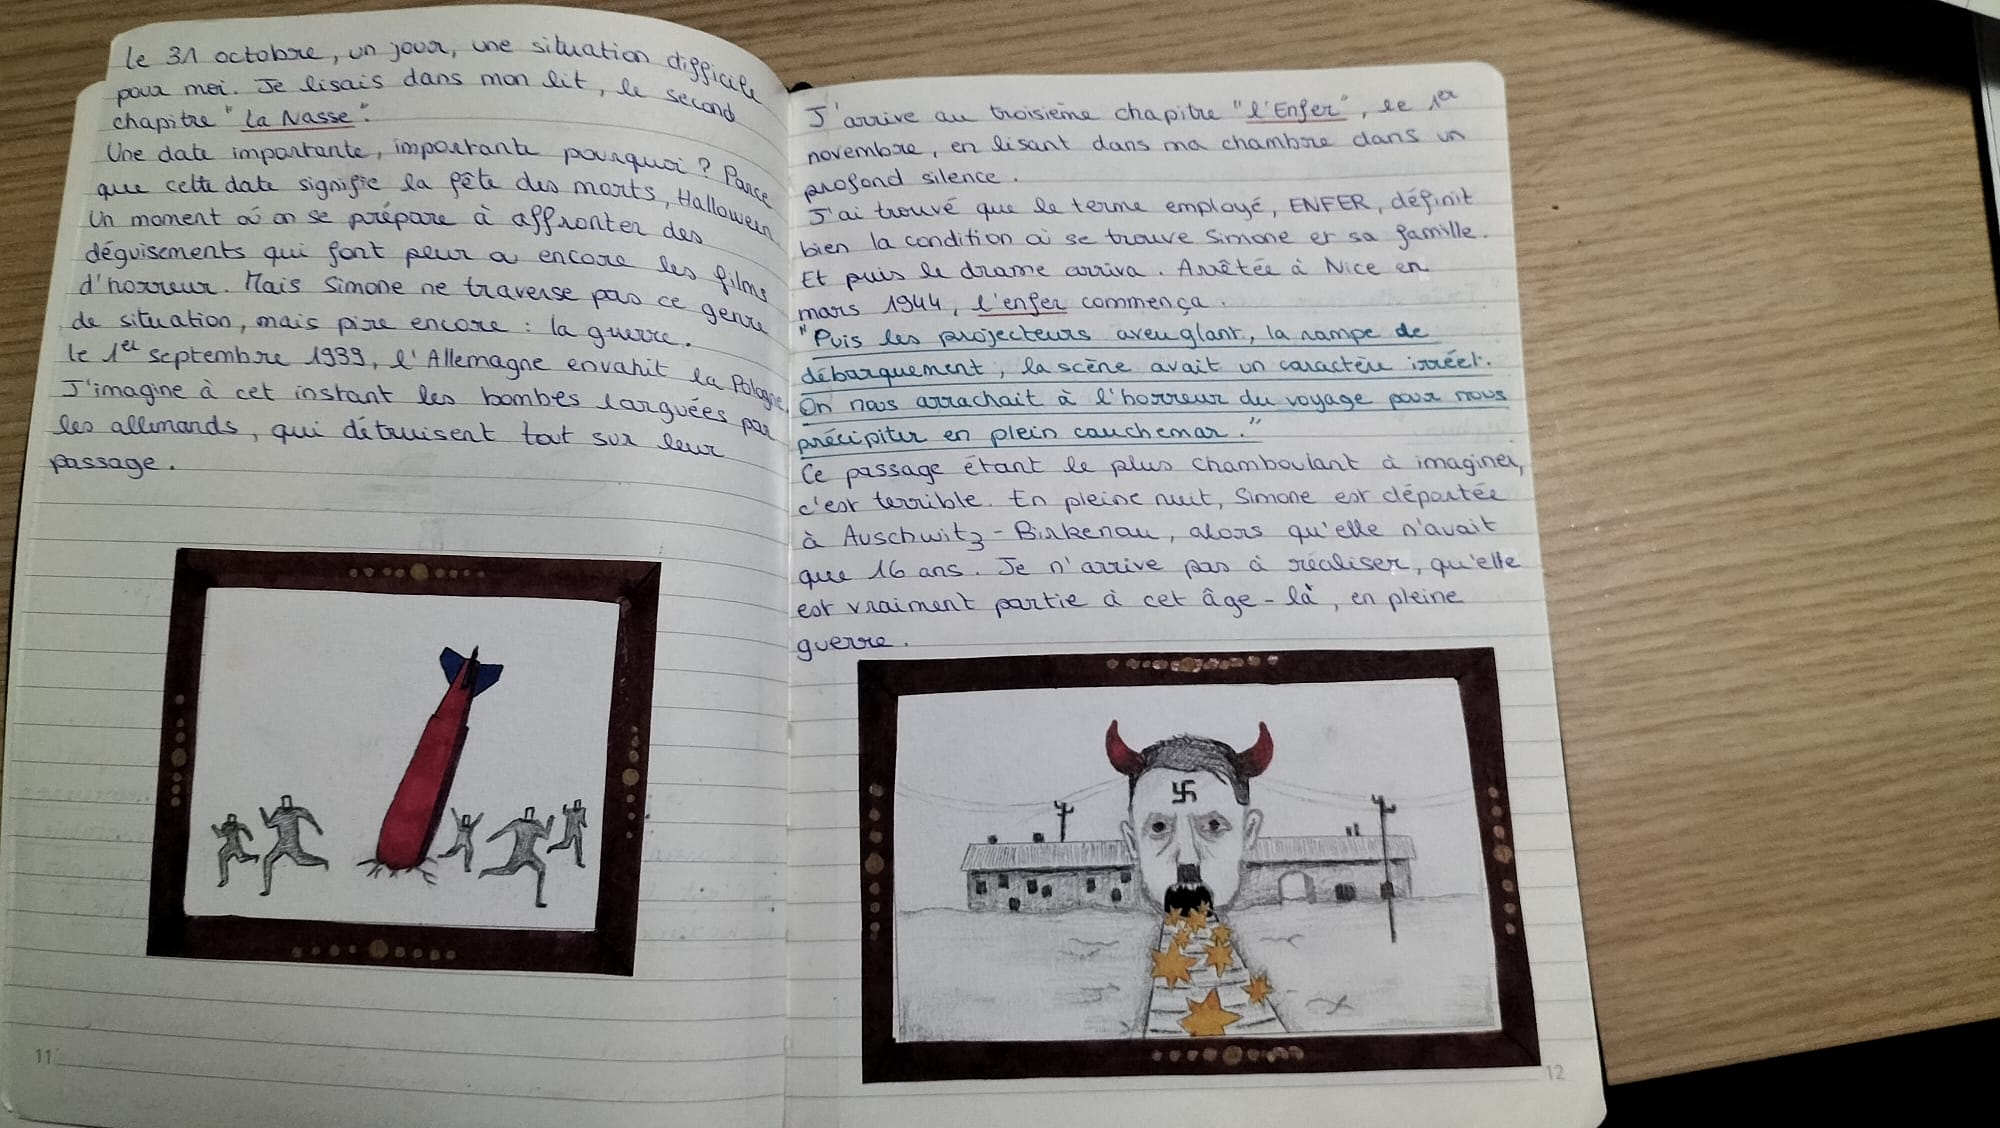 le 31 octobre, un jour, une situation difficile
pour moi. Je lisais dans mon lit, le second
chapitre "La Nasse".
Une date importante, importante pourquoi ? Parce
que cette date signifie la fête des morts, Hallowein
Un moment où on se prépare à affronter des
déguisements qui font peur ou encore les films
d'horreur. Mais Simone ne traverse pas ce genre
de situation, mais pire encore : la guerre.
le 1er septembre 1939, l'Allemagne envahit la Pologne.
J'imagine à cet instant les bombes larguées par
les allemands, qui détruisent tout sur leur
passage.
11
J'arrive au troisième chapitre "l'Enfer", le 1er
novembre, en lisant dans ma chambre dans un
profond silence.
J'ai trouvé que le terme employé, ENFER, définit
bien la condition où se trouve Simone et sa famille.
Et puis le drame arriva. Arrêtée à Nice en
mars 1944, l'enfer commença.
"Puis les projecteurs aveuglant, la rampe de
débarquement, la scène avait un caractère irréel.
On nous arrachait à l'horreur du voyage pour nous
précipiter en plein cauchemar."
Ce passage étant le plus chamboulant à imaginer,
c'est terrible. En pleine nuit, Simone est déportée
à Auschwitz-Birkenau, alors qu'elle n'avait
que 16 ans. Je n'arrive pas à réaliser, qu'elle
est vraiment partie à cet âge-là, en pleine
guerre.
12